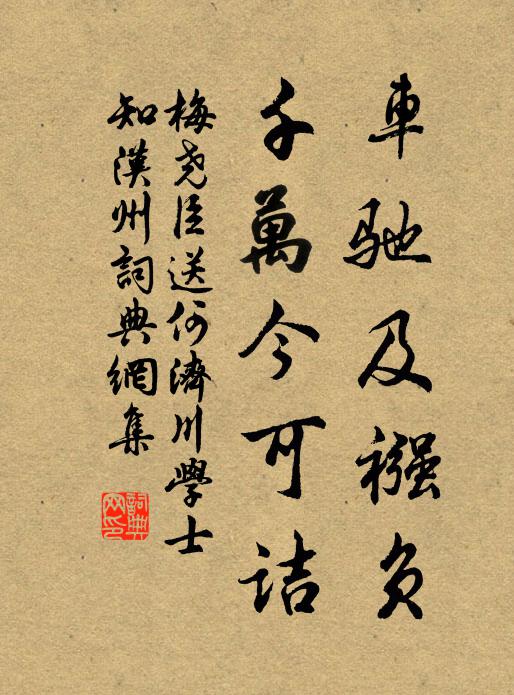 車馳及襁負
千萬今可詰
梅堯臣送何濟川學士
知漢州詞典網集
詞典網印